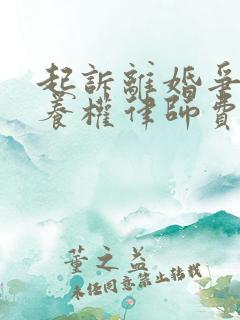 起訴離婚爭
養權律師費
董之益
未經同意禁止轉載